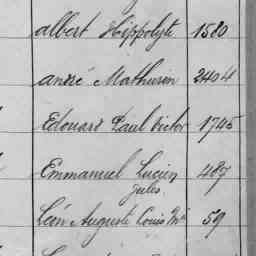 albert Hippolyte 1580
andré Mathurin 2404
Edouard Paul Victor 1745
Emmanuel Lucien 487
Jules
Léon Auguste Louis Mie 59